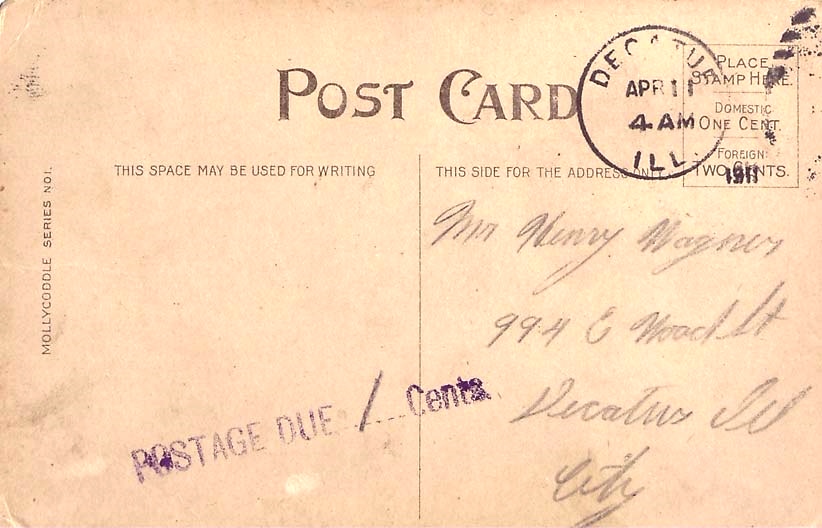 POST CARD
DECATUR
APR 11
4 AM
ILL.
1911
PLACE
STAMP HERE.
DOMESTIC
ONE CENT.
FOREIGN:
TWO CENTS.
THIS SPACE MAY BE USED FOR WRITING
THIS SIDE FOR THE ADDRESS ONLY
MOLLYCODDLE SERIES NO1.
Mr Henry Wagner
994 E Wood St
Decatur Ill
City
POSTAGE DUE 1 Cents.